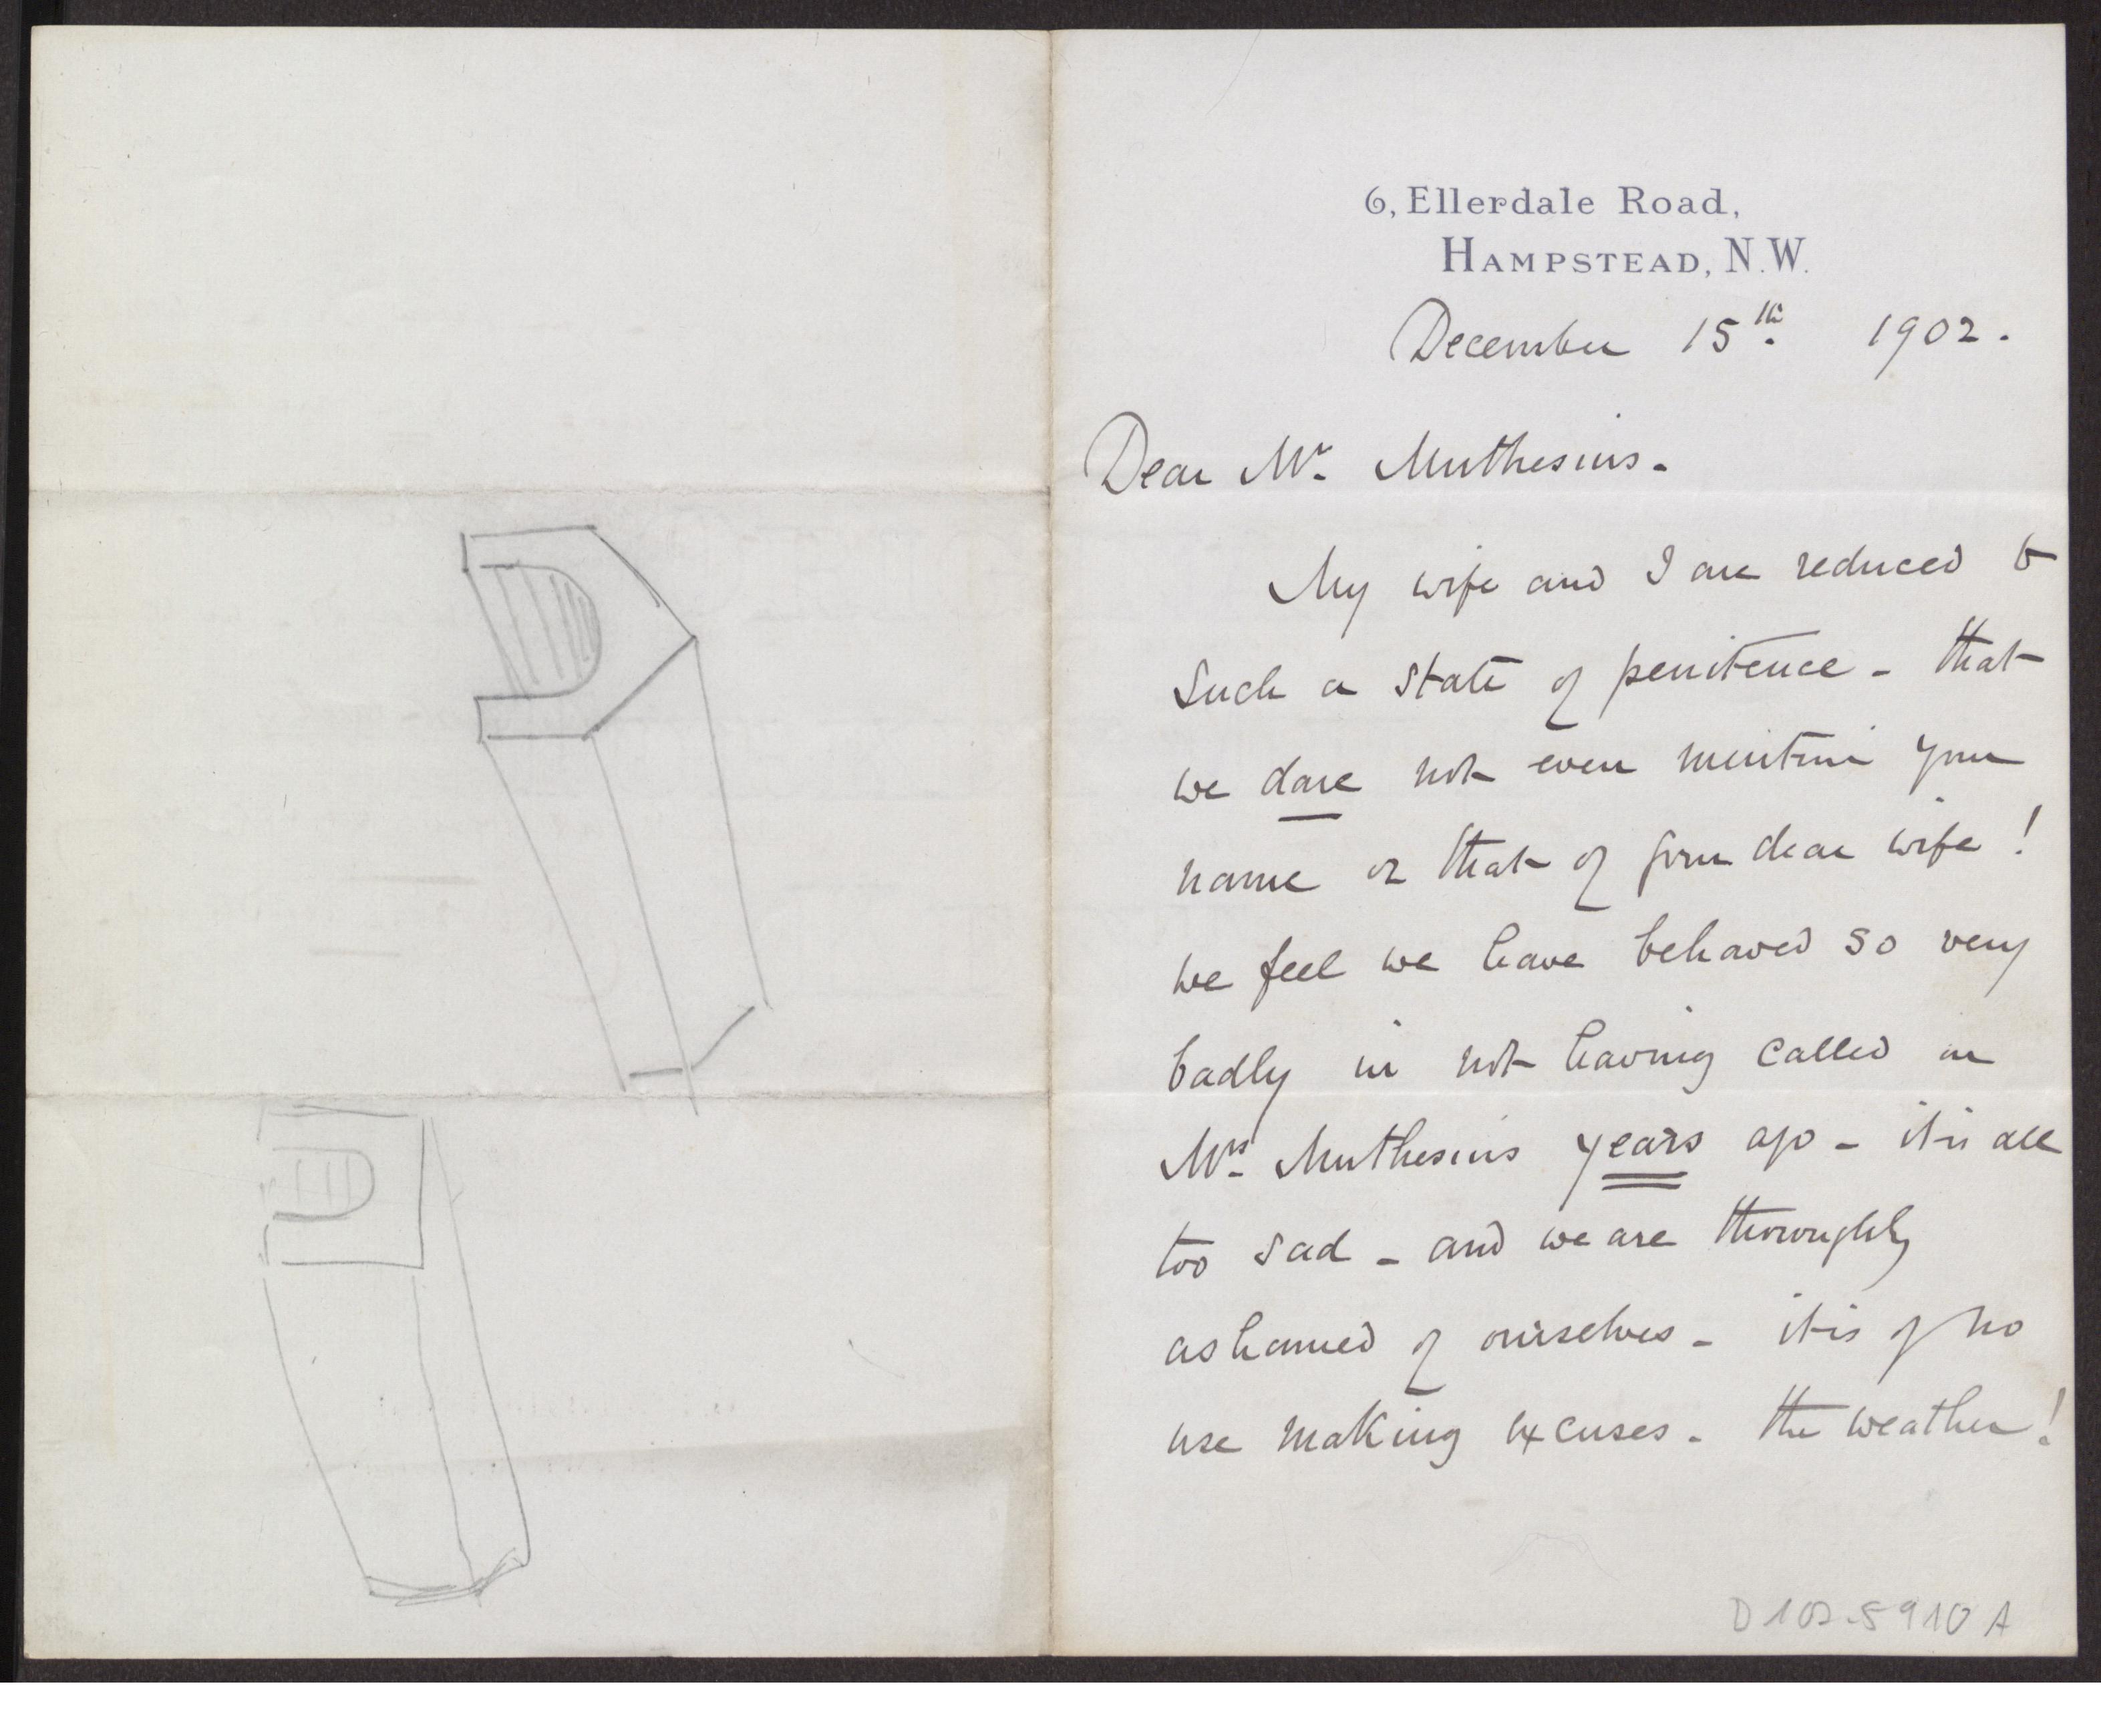 6, Ellerdale Road,
HAMPSTEAD, N.W.
December 15th. 1902.
Dear Mr. Muthesius.
My wife and I are reduced to
such a state of penitence - that
we dare not even mention your
name or that of your dear wife!
we feel we have behaved so very
badly in not having called on
Mrs. Muthesius years ago - it is all
too sad - and we are thoroughly
ashamed of ourselves - it is of no
use making excuses - the weather!
D 102-5910 A